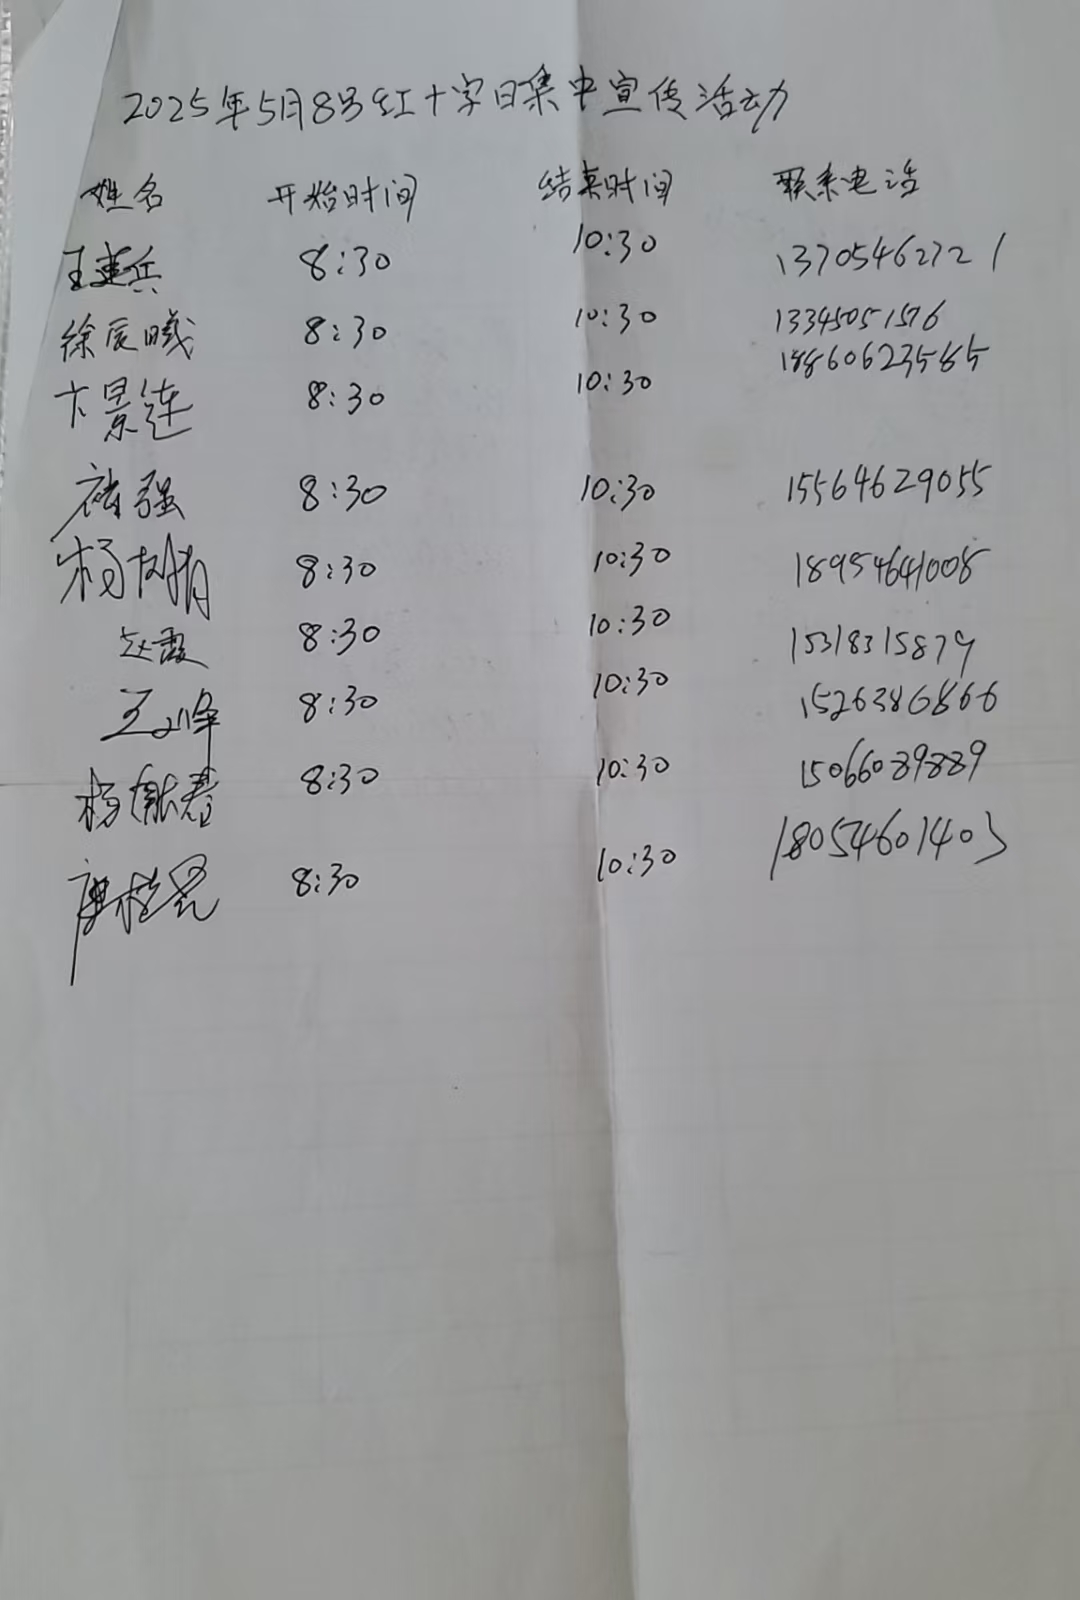 2025年5月8号红十字日集中宣传活动
姓名 开始时间 结束时间 联系电话
王建兵 8:30 10:30 13705462721
徐辰曦 8:30 10:30 13345051576
卞景连 8:30 10:30 18860623585
褚强 8:30 10:30 15564629055
杨树有 8:30 10:30 18954641008
赵霞 8:30 10:30 15318315879
王峰 8:30 10:30 15263386866
杨献春 8:30 10:30 15066089889
8:30 10:30 18054601403